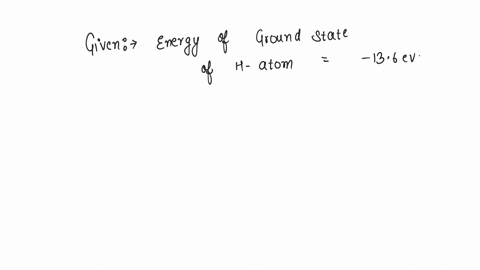 Given:→ Energy of Ground state
of H-atom = -13.6 ev.